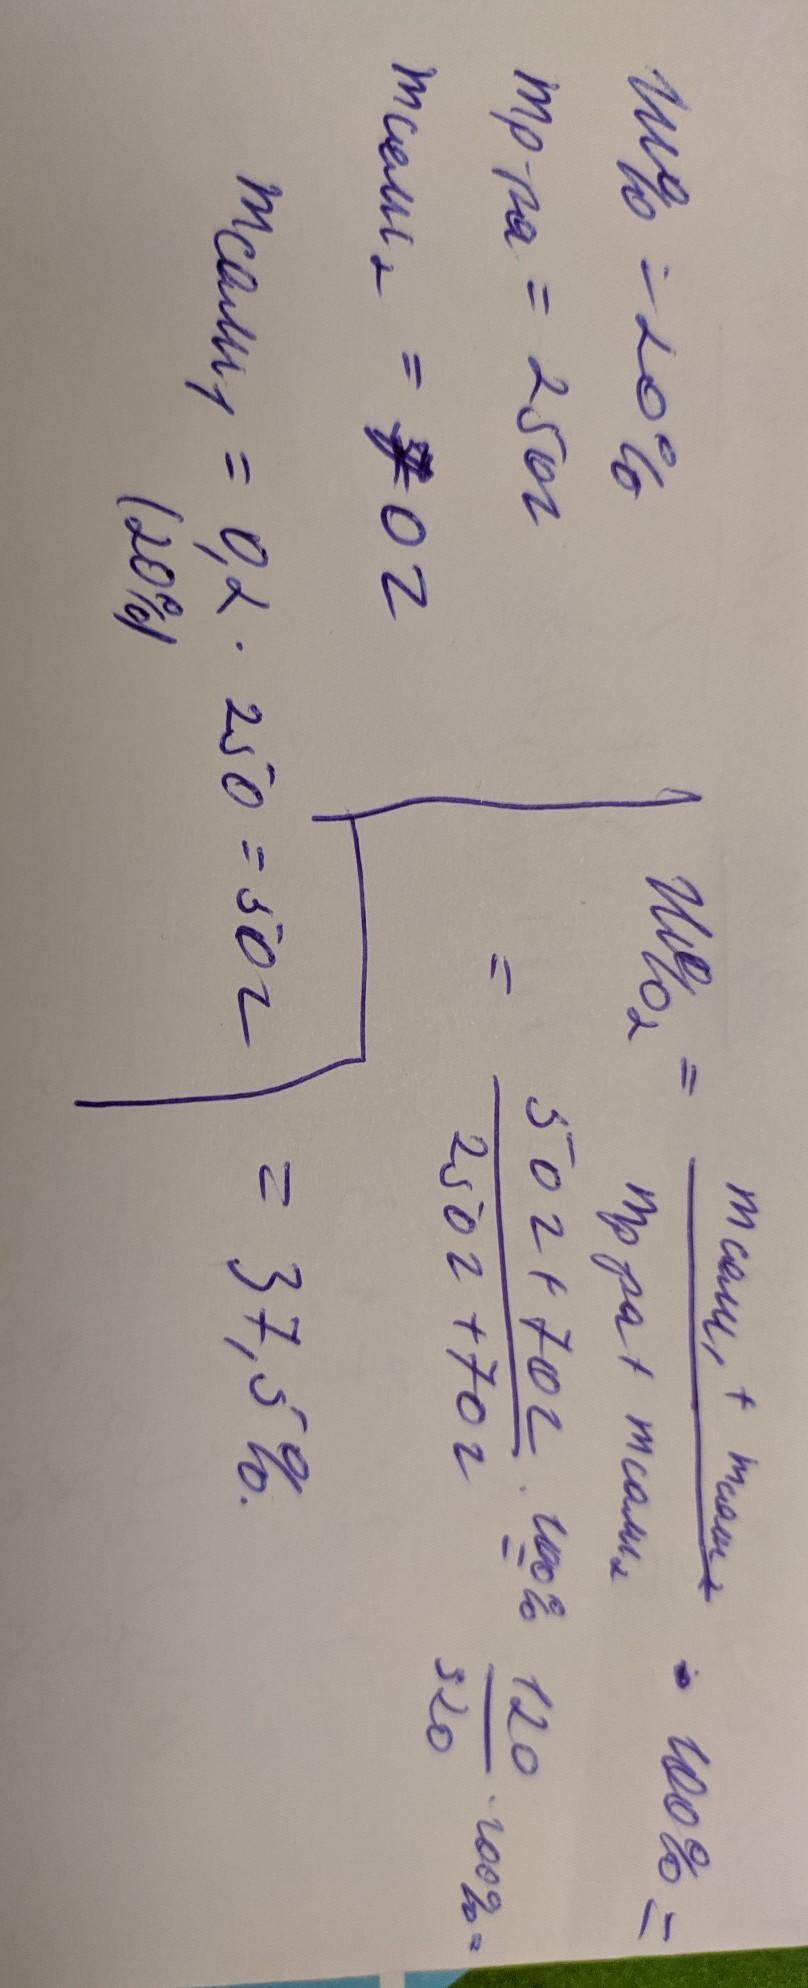 W% - 20%
mр-ра = 250г
mсоли₂ = 70г
mсоли₁ = 0,2 · 250 = 50г
(20%)
W%₂ = mсоли₁ + mсоли₂ / mр-ра + mсоли₂ · 100% =
= 50г + 70г / 250г + 70г · 100% = 120 / 320 · 100% =
= 37,5%.